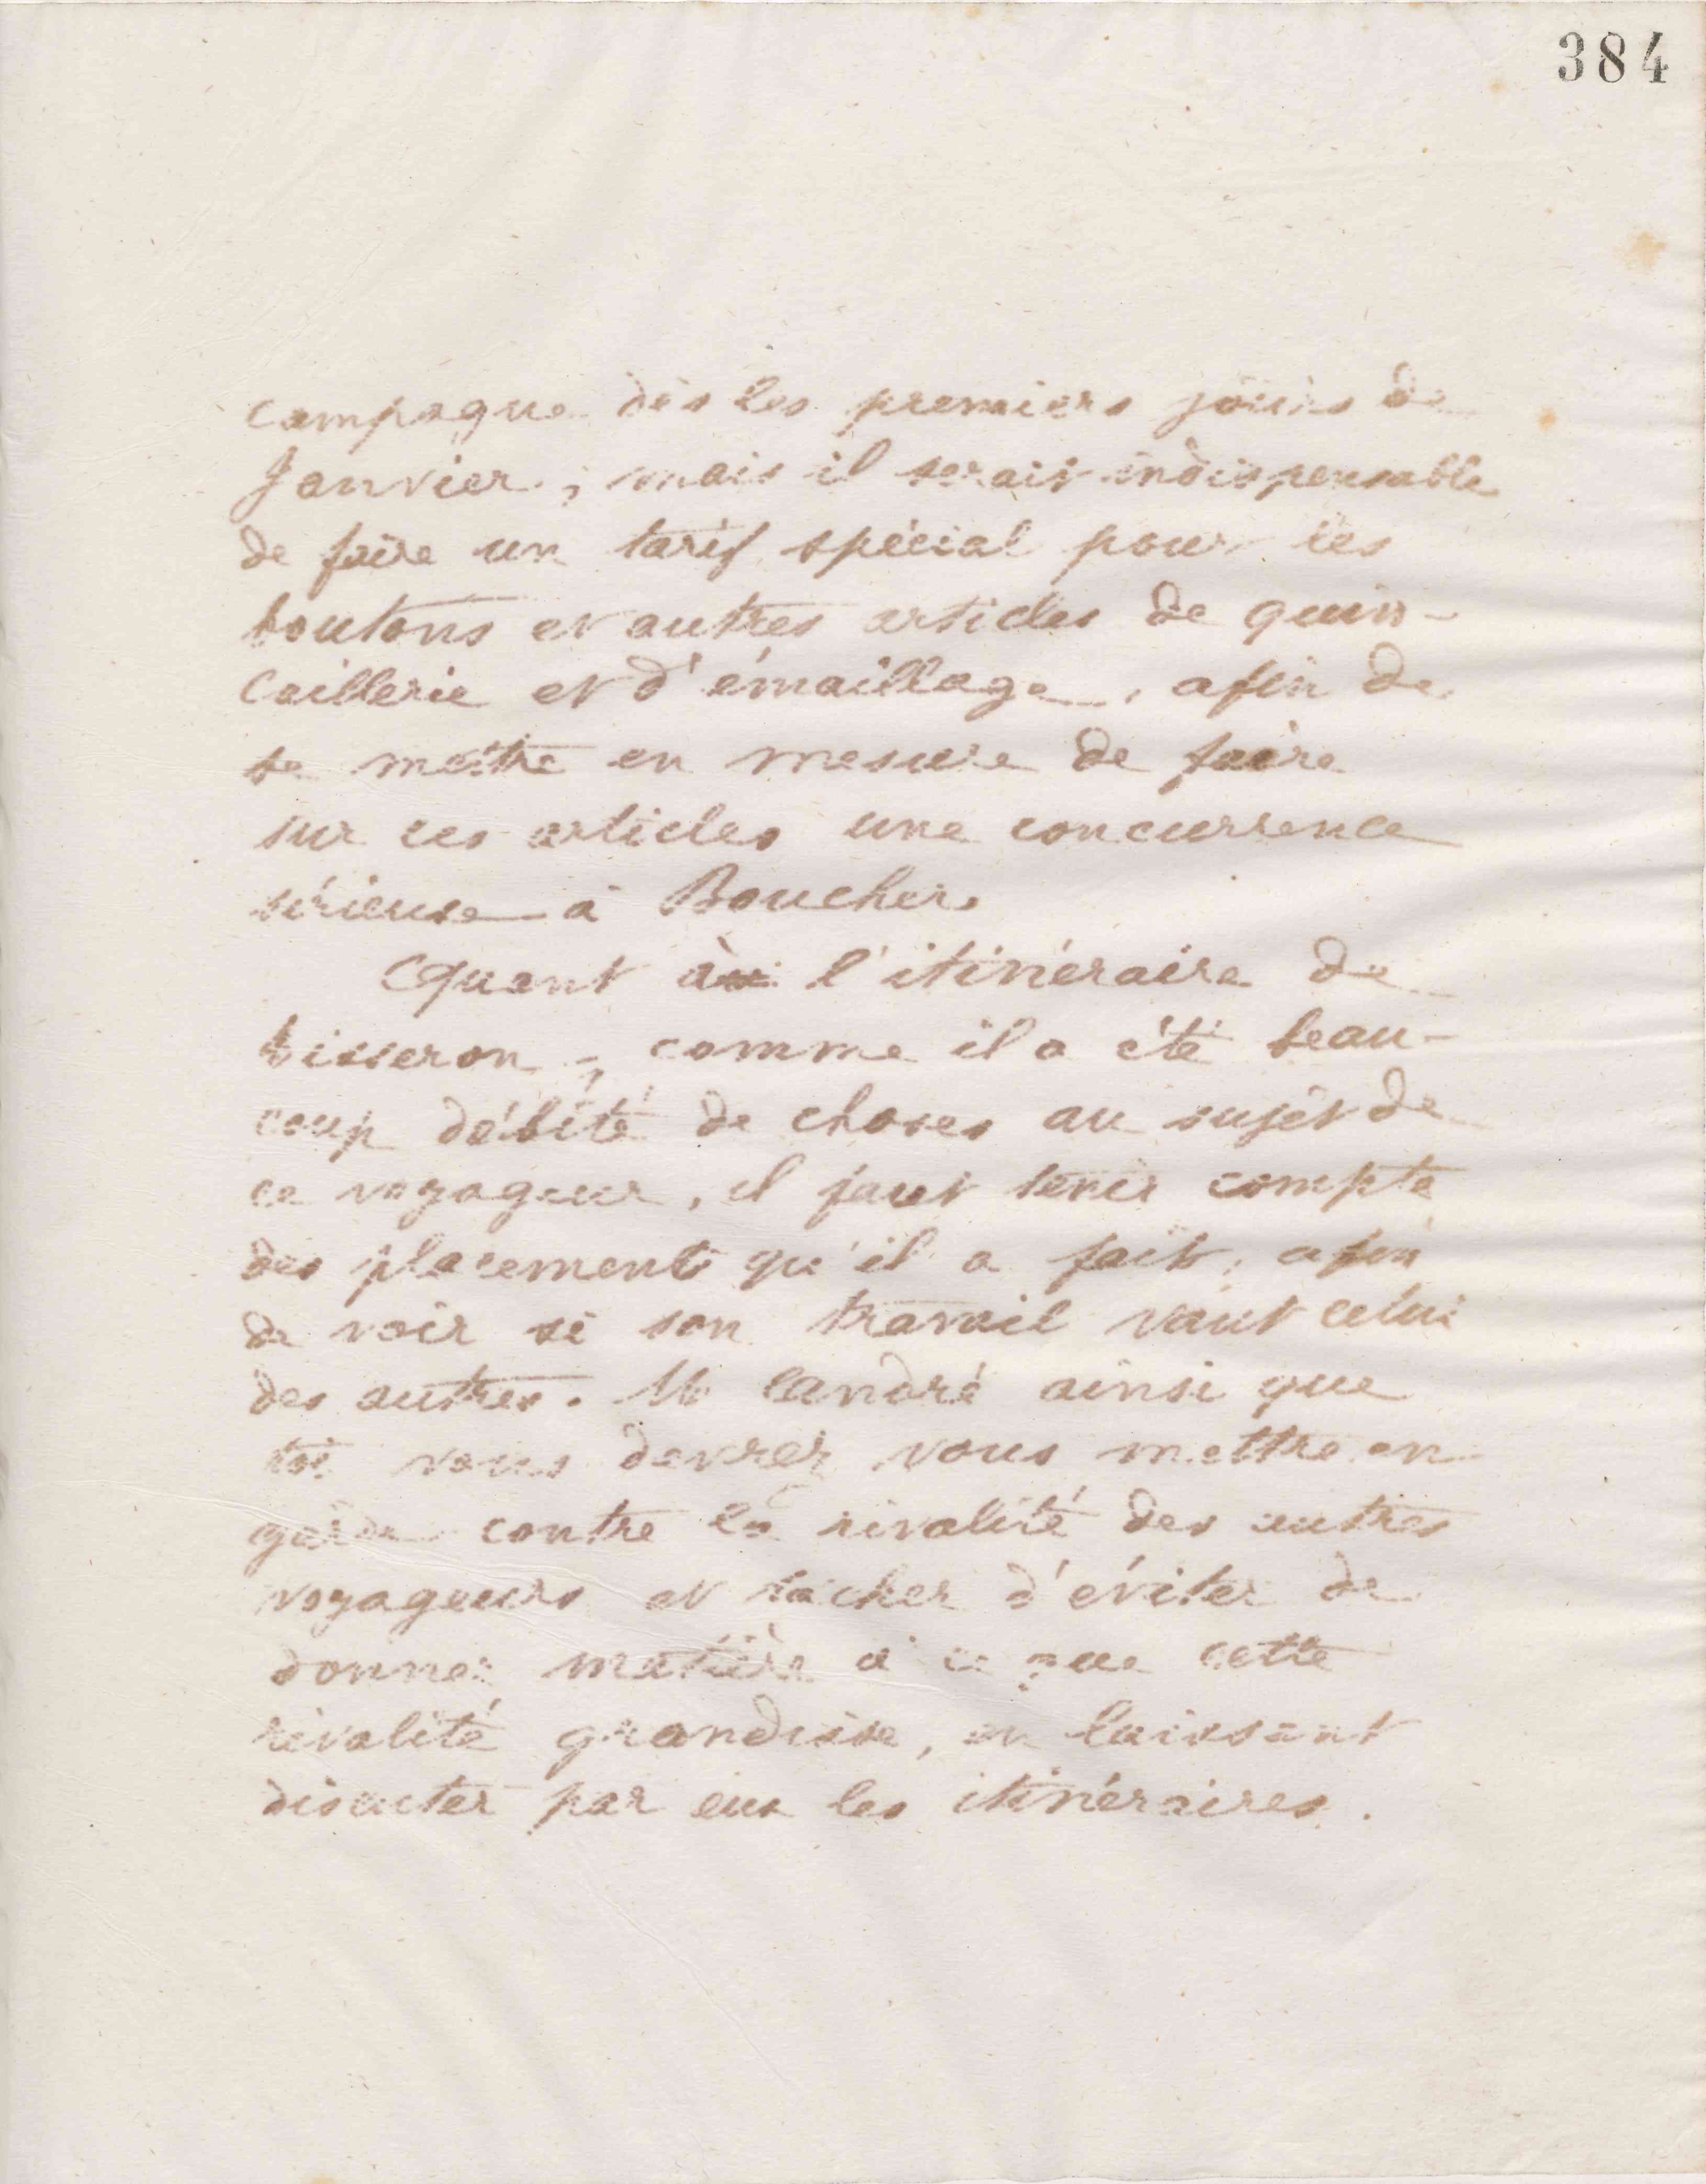 384
campagne dès les premiers jours de
Janvier, mais il serait indispensable
de faire un tarif spécial pour les
boutons et autres articles de quin-
caillerie et d'émaillage, afin de
se mettre en mesure de faire
sur ces articles une concurrence
sérieuse à Boucher.
Quant à l'itinéraire de
Tisseron, comme il a été beau-
coup débité de choses au sujet de
ce voyageur, il faut tenir compte
des placements qu'il a fait, afin
de voir si son travail vaut celui
des autres. Mr Landré ainsi que
toi vous devrez vous mettre en
garde contre la rivalité des autres
voyageurs et tâcher d'éviter de
donner matière à ce que cette
rivalité grandisse, en laissant
discuter par eux les itinéraires.